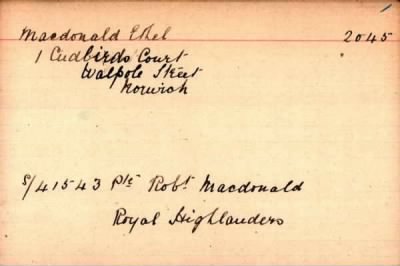 Macdonald Ethel 2045
1 Cudbirds Court
Walpole Street
Norwich
S/41543 Pte Robt Macdonald
Royal Highlanders